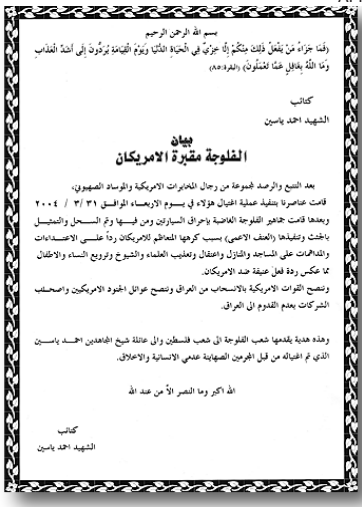 بسم الله الرحمن الرحيم
(فَمَا جَزَاءُ مَنْ يَفْعَلُ ذَلِكَ مِنْكُمْ إِلَّا خِزْيٌ فِي الْحَيَاةِ الدُّنْيَا وَيَوْمَ الْقِيَامَةِ يُرَدُّونَ إِلَى أَشَدِّ الْعَذَابِ
وَمَا اللَّهُ بِغَافِلٍ عَمَّا تَعْمَلُونَ) (البقرة:٨٥)
كتائب
الشهيد احمد ياسين
بيان
الفلوجة مقبرة الامريكان
بعد التتبع والرصد لمجموعة من رجال المخابرات الامريكية والموساد الصهيوني،
قامت عناصرنا بتنفيذ عملية اغتيال هؤلاء في يــــوم الاربعــاء الموافــق ٣١ /٣ / ٢٠٠٤
وبعدها قامت جماهير الفلوجة الغاضبة بإحراق السيارتين ومن فيــهــا وتم الســـحل والتمثيــل
بالجثث وتنفيذها (العنف الاعمى) بسبب كرهها المتعاظم للامريكان رداً علــــى الاعتـــداءات
والمداهمات على المساجد والمنازل واعتقال وتعذيب العلماء والشيوخ وترويع النساء والاطفال
مما عكس ردة فعل عنيفة ضد الامريكان.
وننصح القوات الامريكية بالانسحاب من العراق وننصح عوائل الجنود الامريكيين واصحـــاب
الشركات بعدم القدوم الى العراق.
وهذه هدية يقدمها شعب الفلوجة الى شعب فلسطين والى عائلة شيخ المجاهدين احمـــد ياســـين
الذي تم اغتياله من قبل المجرمين الصهاينة عدمي الانسانية والاخلاق.
الله اكبر وما النصر الاّ من عند الله
كتائب
الشهيد احمد ياسين